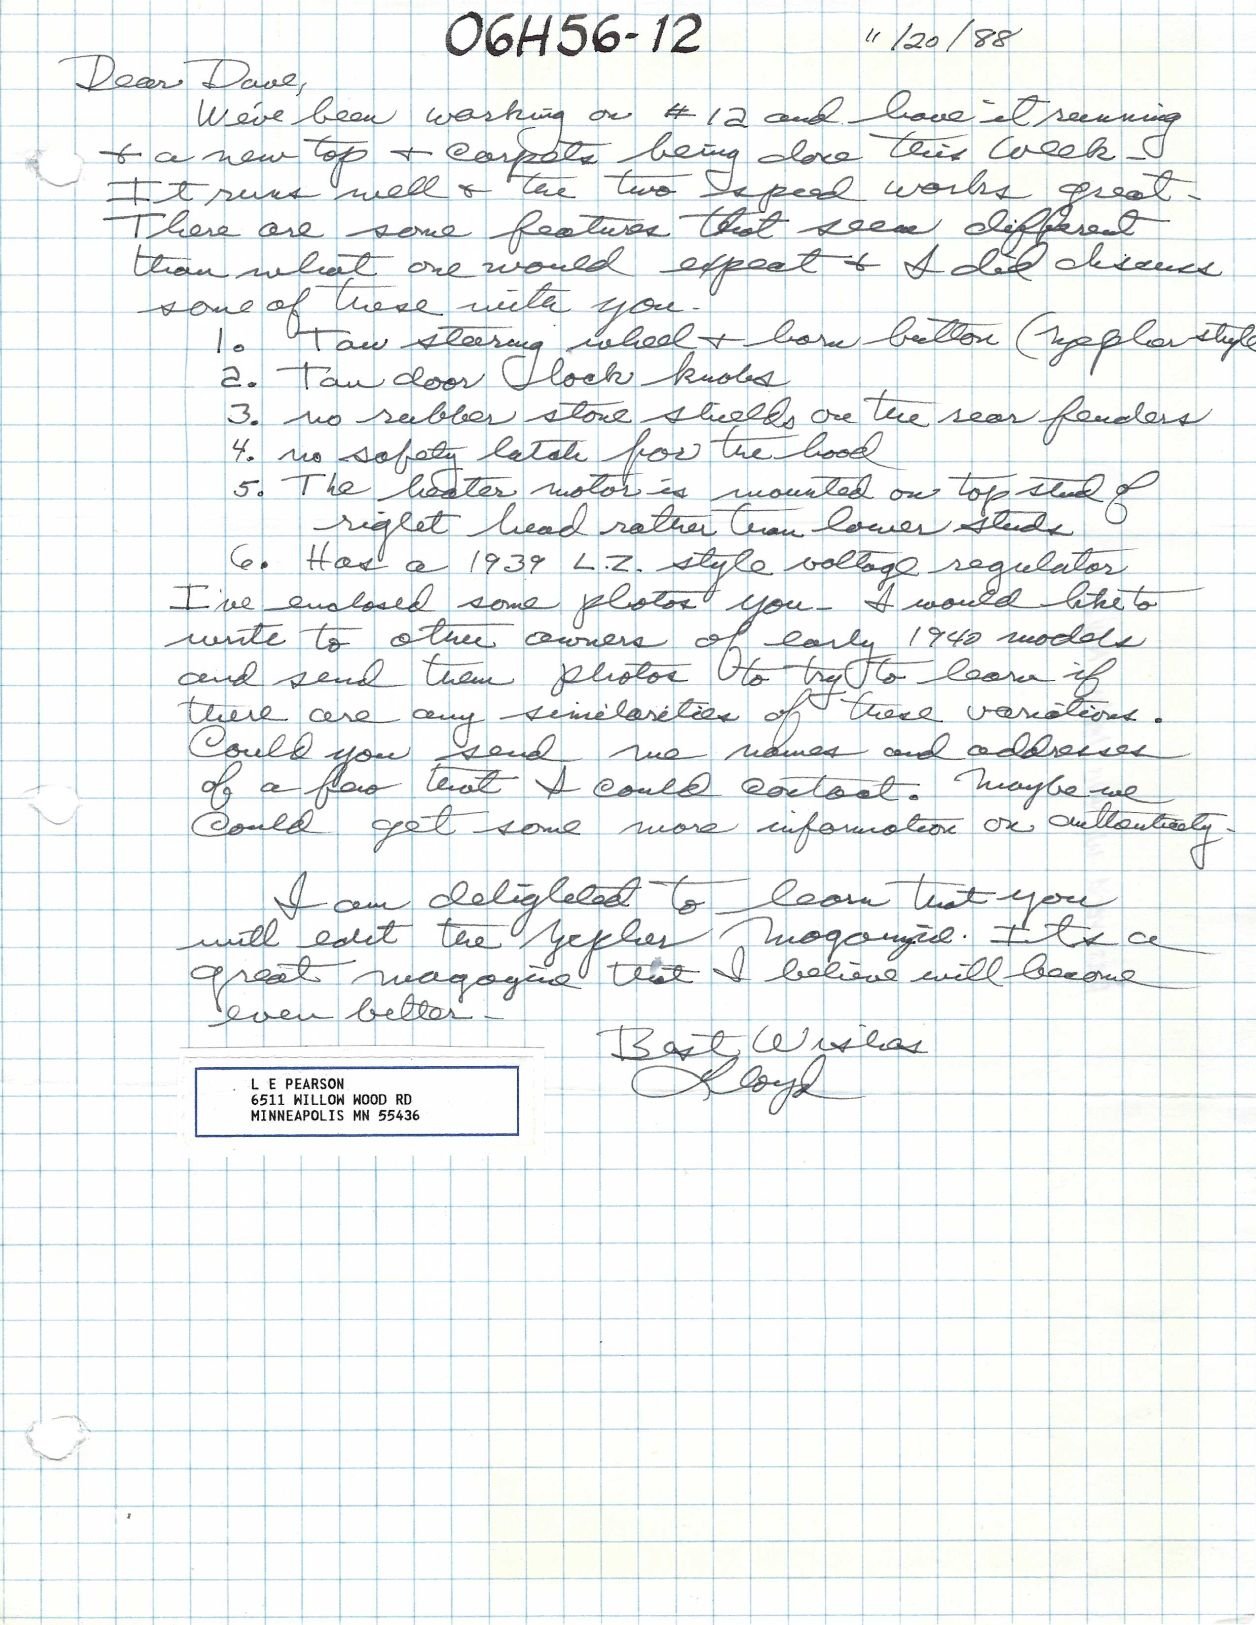 06H56-12
11/20/88
Dear Dave,
We've been working on #12 and have it running
+ a new top + carpets being done this week -
It runs well + the two speed works great -
There are some features that seem different
than what one would expect + I did discuss
some of these with you.
1. Tan steering wheel + horn button (Zephyr style
2. Tan door lock knobs
3. no rubber stone shields on the rear fenders
4. no safety latch for the hood
5. The heater motor is mounted on top stud of
right head rather than lower studs
6. Has a 1939 L.Z. style voltage regulator
I've enclosed some photos you - I would like to
write to other owners of early 1940 models
and send them photos to try to learn if
there are any similarities of these variations.
Could you send me names and addresses
of a few that I could contact. Maybe we
could get some more information on authenticity -
I am delighted to learn that you
will edit the Zephyr Magazine. It's a
great magazine that I believe will become
even better -
Best Wishes
Lloyd
L E PEARSON
6511 WILLOW WOOD RD
MINNEAPOLIS MN 55436